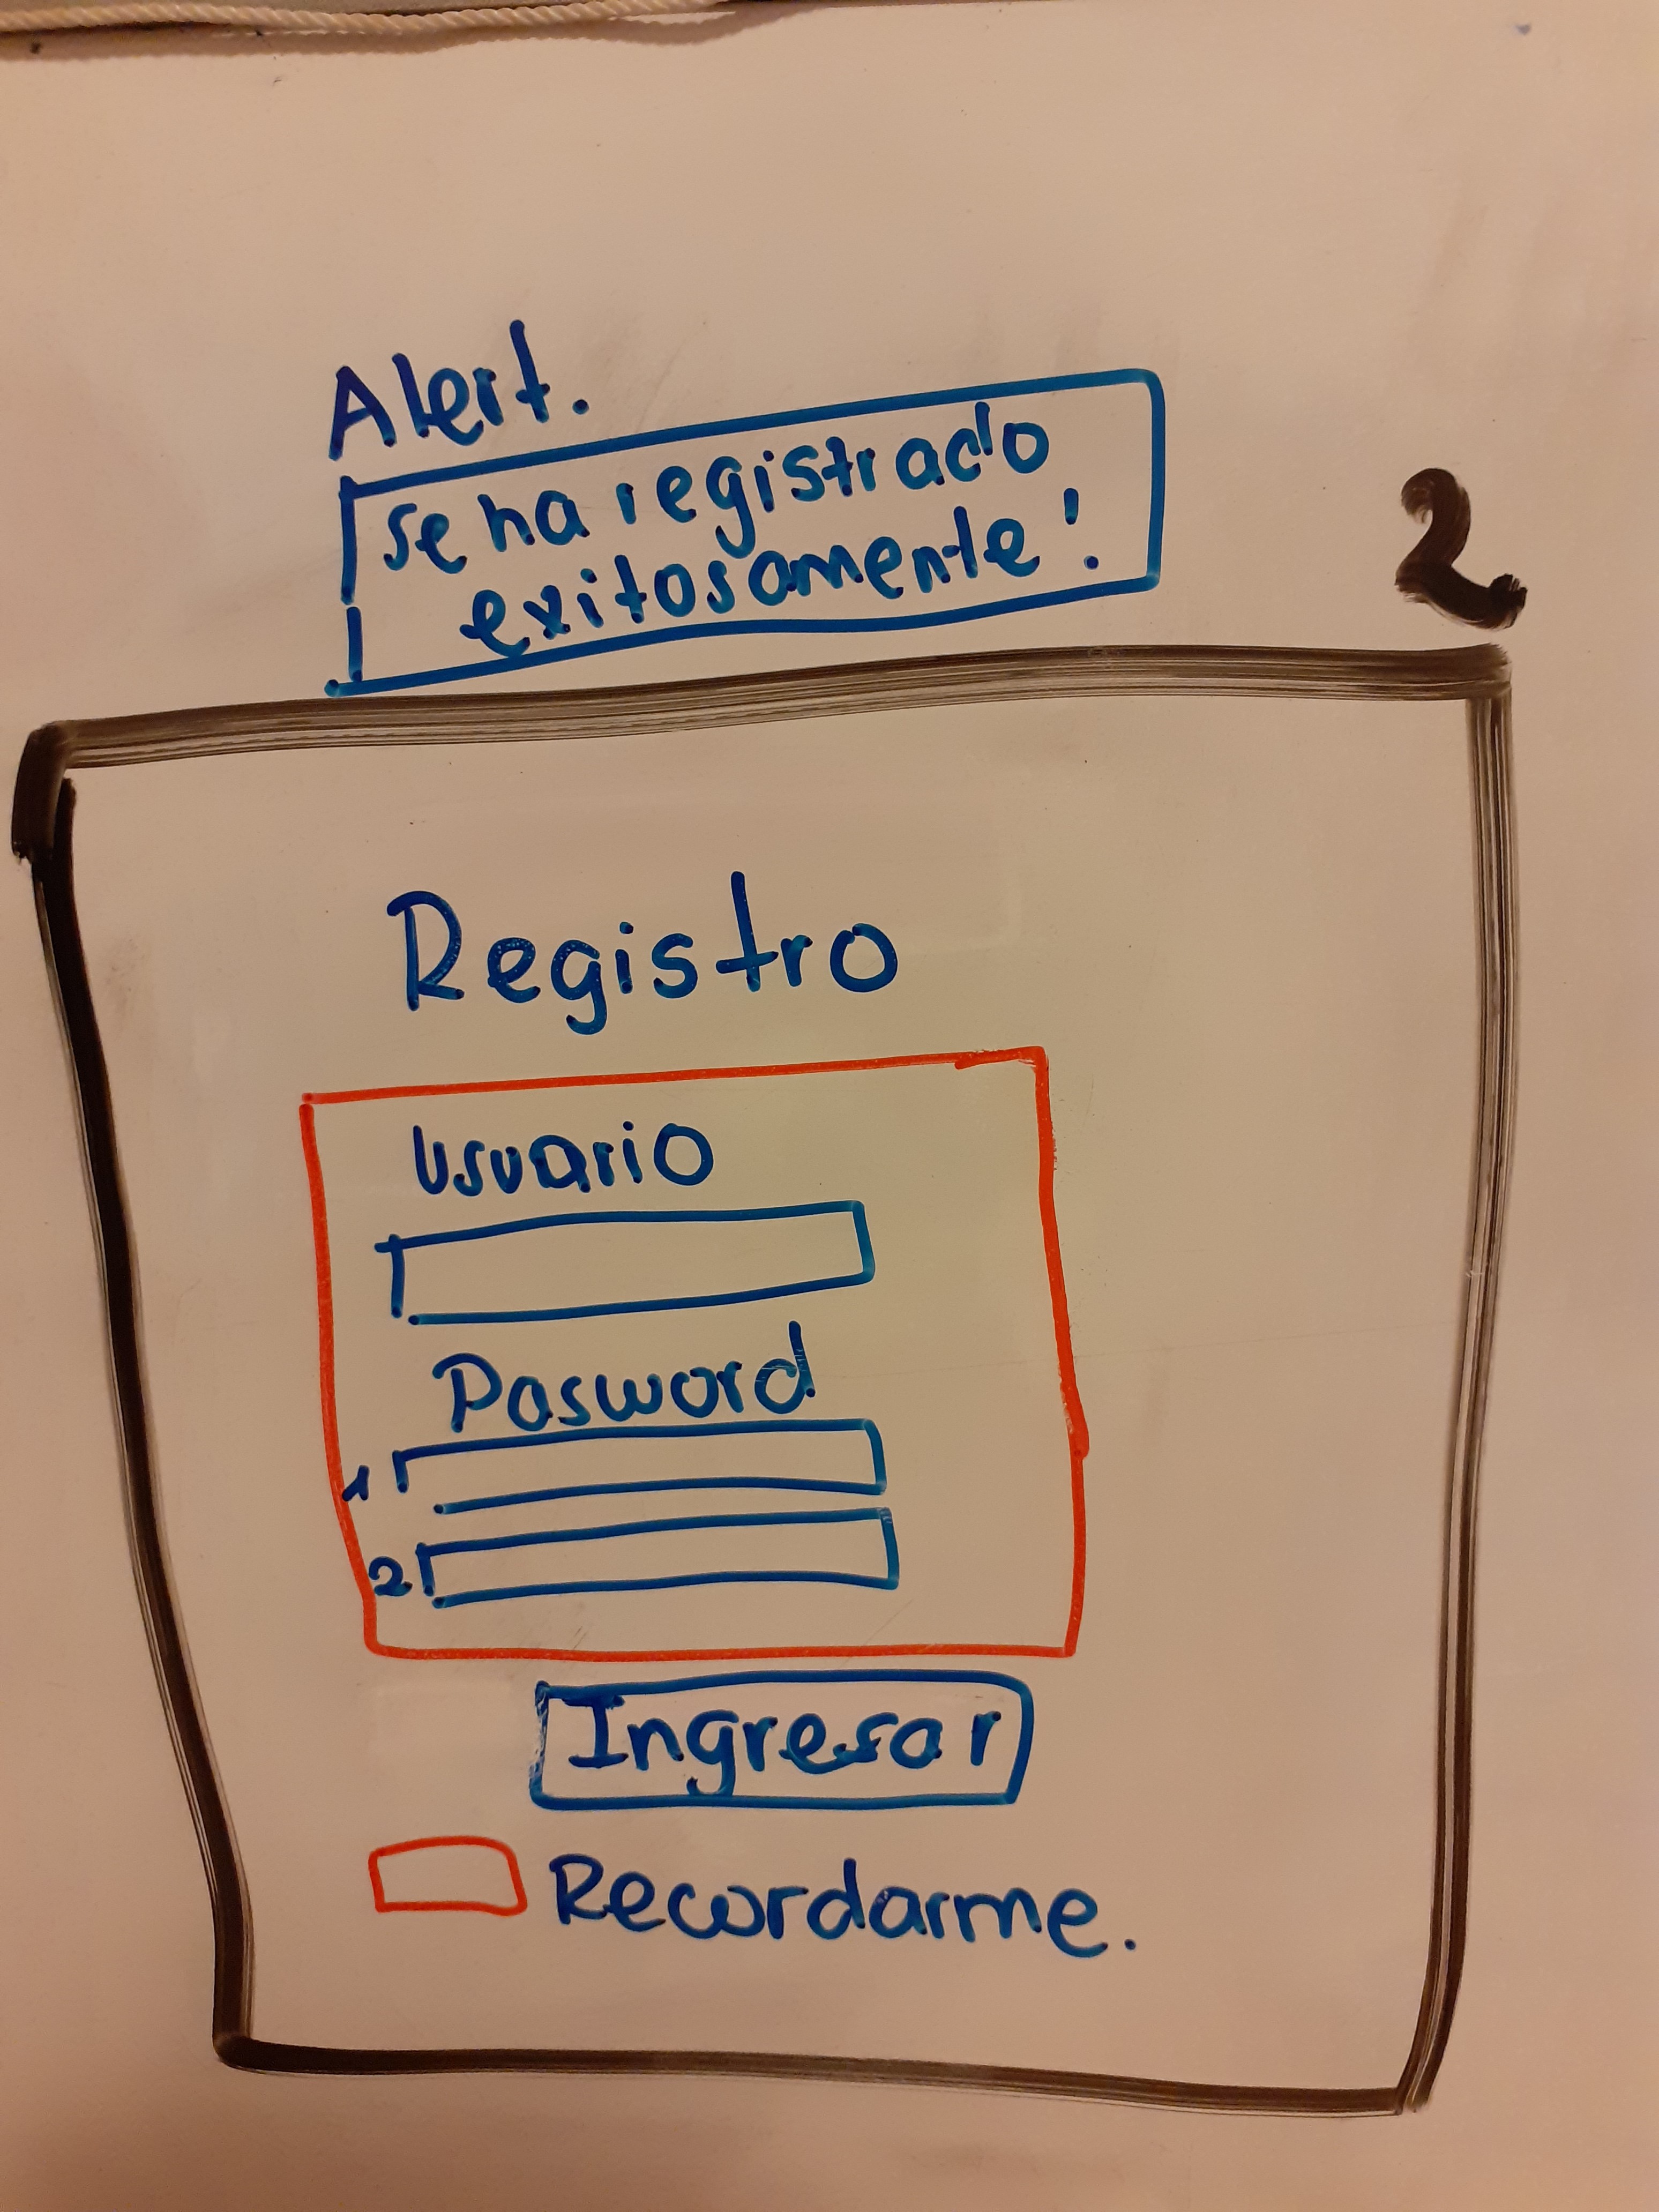 Alert.
se ha registrado
exitosamente!
2
Registro
Usuario
Pasword
1
2
Ingresar
Recordarme.